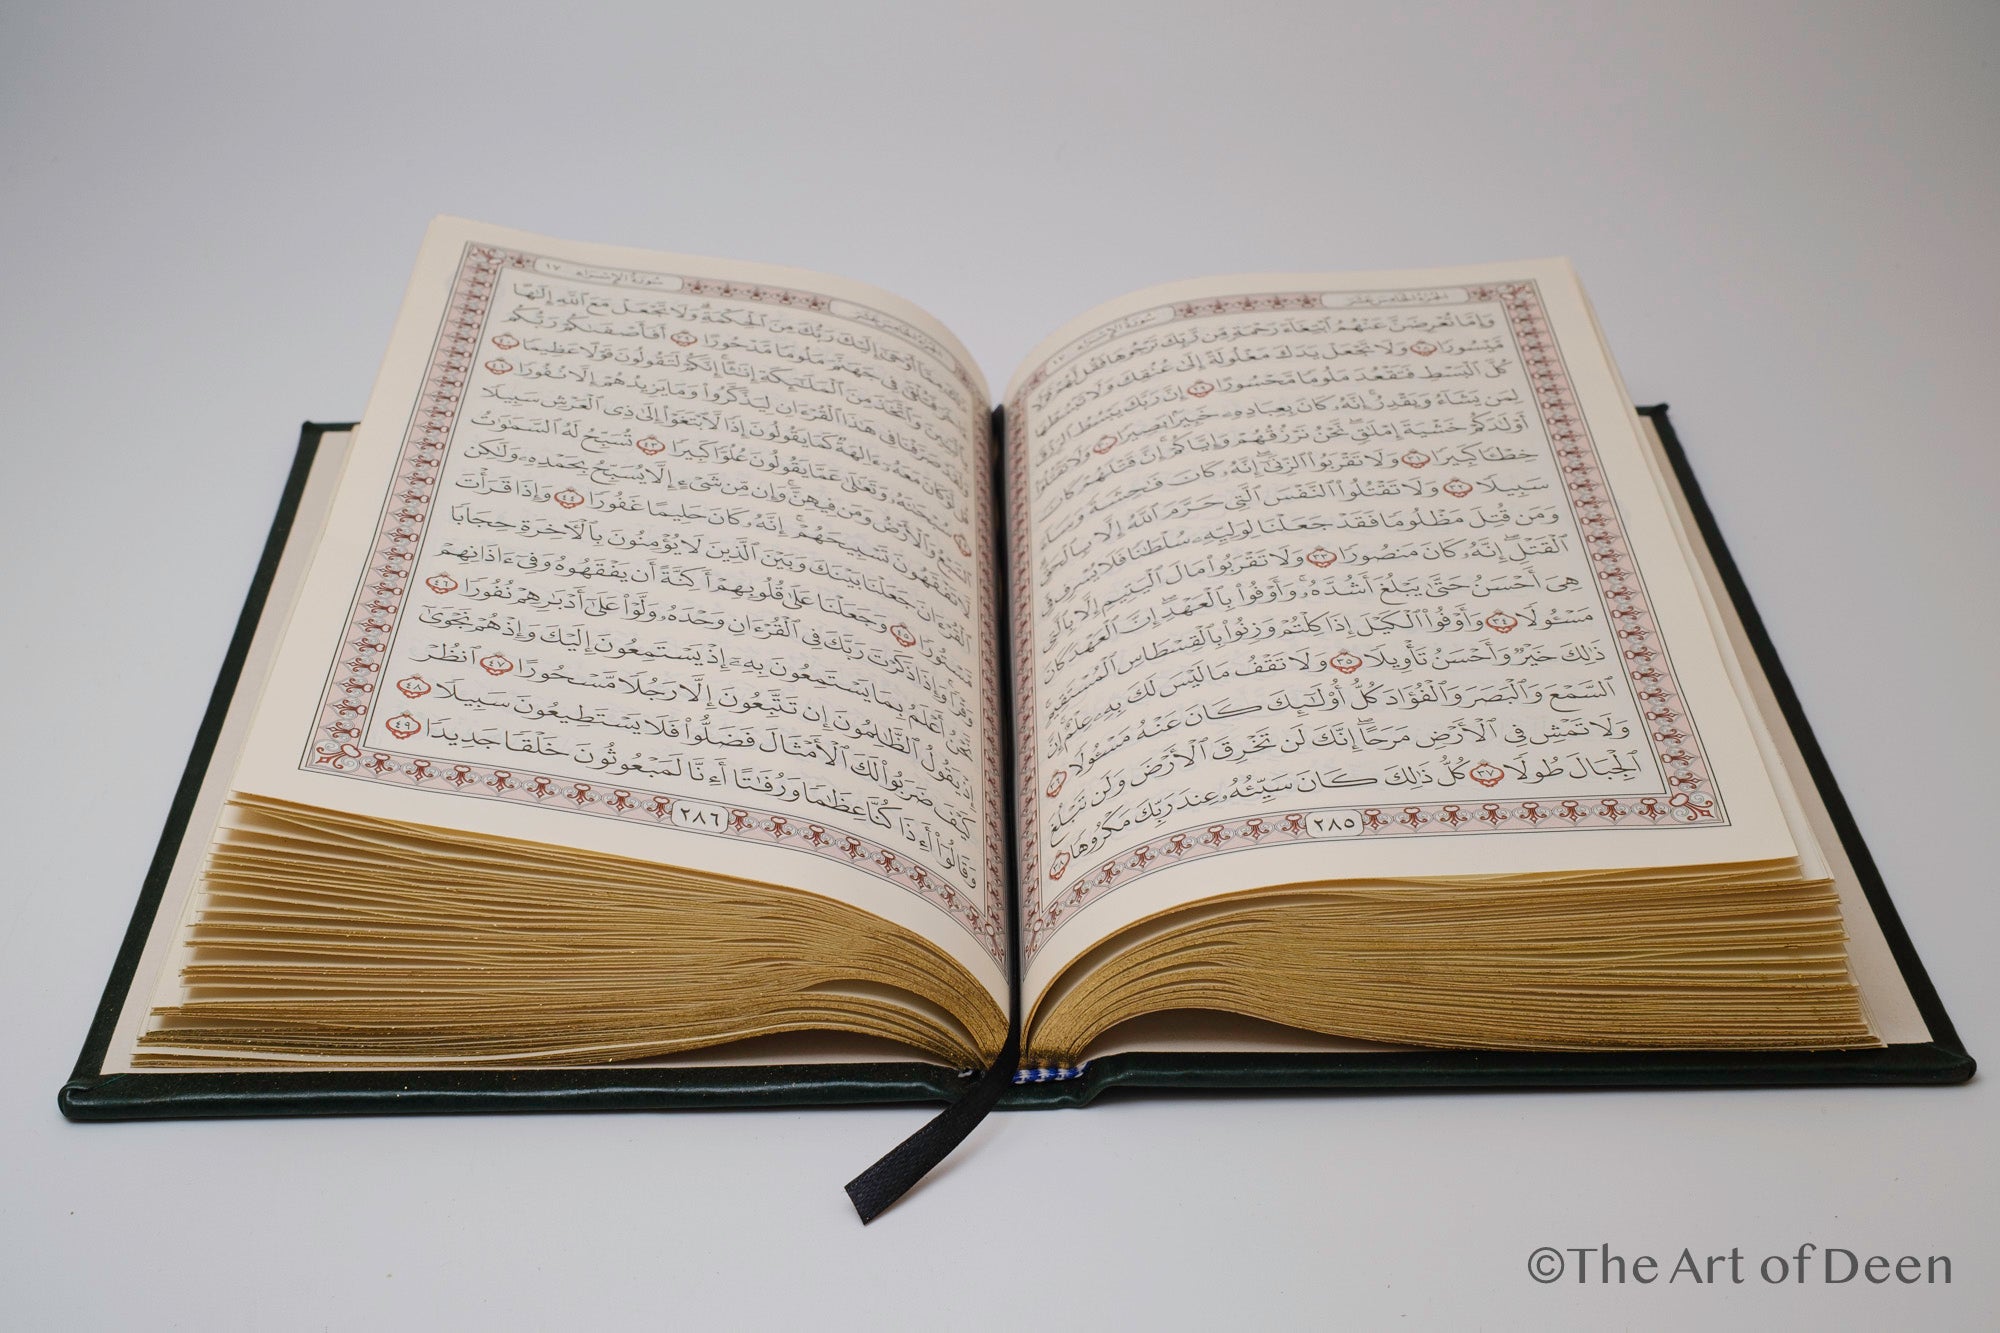 سُورَةُ الإِسْرَاءِ ١٧
الجُزْءُ الخَامِسَ عَشَرَ
وَإِمَّا تُعْرِضَنَّ عَنْهُمُ ٱبْتِغَآءَ رَحْمَةٍ مِّن رَّبِّكَ تَرْجُوهَا فَقُل لَّهُمْ قَوْلًا
مَّيْسُورًا ٢٨ وَلَا تَجْعَلْ يَدَكَ مَغْلُولَةً إِلَىٰ عُنُقِكَ وَلَا تَبْسُطْهَا
كُلَّ ٱلْبَسْطِ فَتَقْعُدَ مَلُومًا مَّحْسُورًا ٢٩ إِنَّ رَبَّكَ يَبْسُطُ ٱلرِّزْقَ
لِمَن يَشَآءُ وَيَقْدِرُ إِنَّهُۥ كَانَ بِعِبَادِهِۦ خَبِيرًۢا بَصِيرًا ٣٠ وَلَا تَقْتُلُوٓا۟
أَوْلَٰدَكُمْ خَشْيَةَ إِمْلَٰقٍ نَّحْنُ نَرْزُقُهُمْ وَإِيَّاكُمْ إِنَّ قَتْلَهُمْ كَانَ
خِطْـًٔا كَبِيرًا ٣١ وَلَا تَقْرَبُوا۟ ٱلزِّنَىٰٓ إِنَّهُۥ كَانَ فَٰحِشَةً وَسَآءَ
سَبِيلًا ٣٢ وَلَا تَقْتُلُوا۟ ٱلنَّفْسَ ٱلَّتِى حَرَّمَ ٱللَّهُ إِلَّا بِٱلْحَقِّ
وَمَن قُتِلَ مَظْلُومًا فَقَدْ جَعَلْنَا لِوَلِيِّهِۦ سُلْطَٰنًا فَلَا يُسْرِف فِّى
ٱلْقَتْلِ إِنَّهُۥ كَانَ مَنصُورًا ٣٣ وَلَا تَقْرَبُوا۟ مَالَ ٱلْيَتِيمِ إِلَّا بِٱلَّتِى
هِىَ أَحْسَنُ حَتَّىٰ يَبْلُغَ أَشُدَّهُۥ وَأَوْفُوا۟ بِٱلْعَهْدِ إِنَّ ٱلْعَهْدَ كَانَ
مَسْـُٔولًا ٣٤ وَأَوْفُوا۟ ٱلْكَيْلَ إِذَا كِلْتُمْ وَزِنُوا۟ بِٱلْقِسْطَاسِ ٱلْمُسْتَقِيمِ
ذَٰلِكَ خَيْرٌ وَأَحْسَنُ تَأْوِيلًا ٣٥ وَلَا تَقْفُ مَا لَيْسَ لَكَ بِهِۦ عِلْمٌ إِنَّ
ٱلسَّمْعَ وَٱلْبَصَرَ وَٱلْفُؤَادَ كُلُّ أُو۟لَٰٓئِكَ كَانَ عَنْهُ مَسْـُٔولًا ٣٦
وَلَا تَمْشِ فِى ٱلْأَرْضِ مَرَحًا إِنَّكَ لَن تَخْرِقَ ٱلْأَرْضَ وَلَن تَبْلُغَ
ٱلْجِبَالَ طُولًا ٣٧ كُلُّ ذَٰلِكَ كَانَ سَيِّئُهُۥ عِندَ رَبِّكَ مَكْرُوهًا ٣٨
٢٨٥
الجُزْءُ الخَامِسَ عَشَرَ
سُورَةُ الإِسْرَاءِ ١٧
ذَٰلِكَ مِمَّآ أَوْحَىٰٓ إِلَيْكَ رَبُّكَ مِنَ ٱلْحِكْمَةِ وَلَا تَجْعَلْ مَعَ ٱللَّهِ إِلَٰهًا
ءَاخَرَ فَتُلْقَىٰ فِى جَهَنَّمَ مَلُومًا مَّدْحُورًا ٣٩ أَفَأَصْفَىٰكُمْ رَبُّكُم
بِٱلْبَنِينَ وَٱتَّخَذَ مِنَ ٱلْمَلَٰٓئِكَةِ إِنَٰثًا إِنَّكُمْ لَتَقُولُونَ قَوْلًا عَظِيمًا ٤٠
وَلَقَدْ صَرَّفْنَا فِى هَٰذَا ٱلْقُرْءَانِ لِيَذَّكَّرُوا۟ وَمَا يَزِيدُهُمْ إِلَّا نُفُورًا ٤١
قُل لَّوْ كَانَ مَعَهُۥٓ ءَالِهَةٌ كَمَا يَقُولُونَ إِذًا لَّٱبْتَغَوْا۟ إِلَىٰ ذِى ٱلْعَرْشِ سَبِيلًا
٤٢ سُبْحَٰنَهُۥ وَتَعَٰلَىٰ عَمَّا يَقُولُونَ عُلُوًّا كَبِيرًا ٤٣ تُسَبِّحُ لَهُ ٱلسَّمَٰوَٰتُ
ٱلسَّبْعُ وَٱلْأَرْضُ وَمَن فِيهِنَّ وَإِن مِّن شَىْءٍ إِلَّا يُسَبِّحُ بِحَمْدِهِۦ وَلَٰكِن
لَّا تَفْقَهُونَ تَسْبِيحَهُمْ إِنَّهُۥ كَانَ حَلِيمًا غَفُورًا ٤٤ وَإِذَا قَرَأْتَ
ٱلْقُرْءَانَ جَعَلْنَا بَيْنَكَ وَبَيْنَ ٱلَّذِينَ لَا يُؤْمِنُونَ بِٱلْءَاخِرَةِ حِجَابًا
مَّسْتُورًا ٤٥ وَجَعَلْنَا عَلَىٰ قُلُوبِهِمْ أَكِنَّةً أَن يَفْقَهُوهُ وَفِىٓ ءَاذَانِهِمْ
وَقْرًا وَإِذَا ذَكَرْتَ رَبَّكَ فِى ٱلْقُرْءَانِ وَحْدَهُۥ وَلَّوْا۟ عَلَىٰٓ أَدْبَٰرِهِمْ نُفُورًا ٤٦
نَّحْنُ أَعْلَمُ بِمَا يَسْتَمِعُونَ بِهِۦٓ إِذْ يَسْتَمِعُونَ إِلَيْكَ وَإِذْ هُمْ نَجْوَىٰٓ
إِذْ يَقُولُ ٱلظَّٰلِمُونَ إِن تَتَّبِعُونَ إِلَّا رَجُلًا مَّسْحُورًا ٤٧ ٱنظُرْ
كَيْفَ ضَرَبُوا۟ لَكَ ٱلْأَمْثَالَ فَضَلُّوا۟ فَلَا يَسْتَطِيعُونَ سَبِيلًا ٤٨
وَقَالُوٓا۟ أَءِذَا كُنَّا عِظَٰمًا وَرُفَٰتًا أَءِنَّا لَمَبْعُوثُونَ خَلْقًا جَدِيدًا ٤٩
٢٨٦
©The Art of Deen